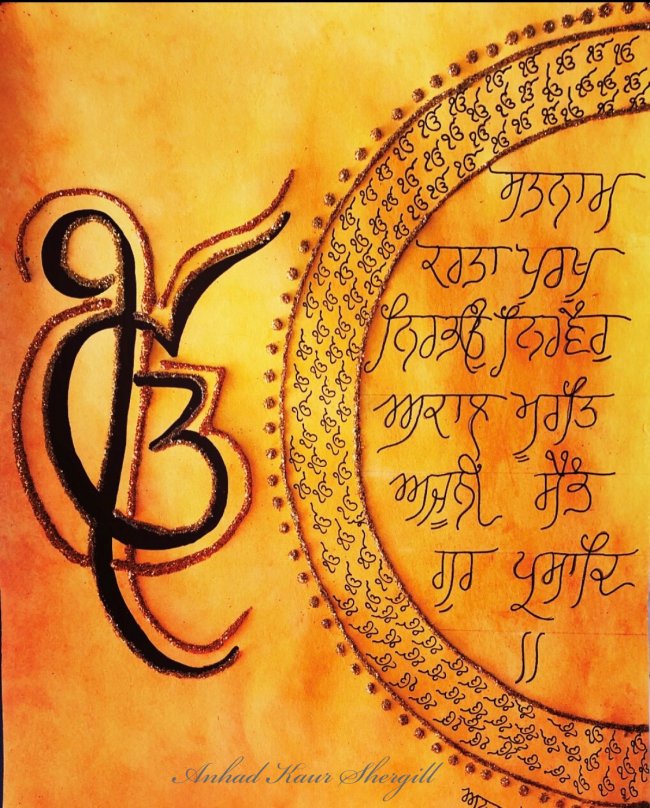 ੴ
ਸਤਨਾਮ
ਕਰਤਾ ਪੁਰਖੁ
ਨਿਰਭਉ ਨਿਰਵੈਰੁ
ਅਕਾਲ ਮੂਰਤਿ
ਅਜੂਨੀਂ ਸੈਭੰ
ਗੁਰ ਪ੍ਰਸਾਦਿ
॥
Anhad Kaur Shergill